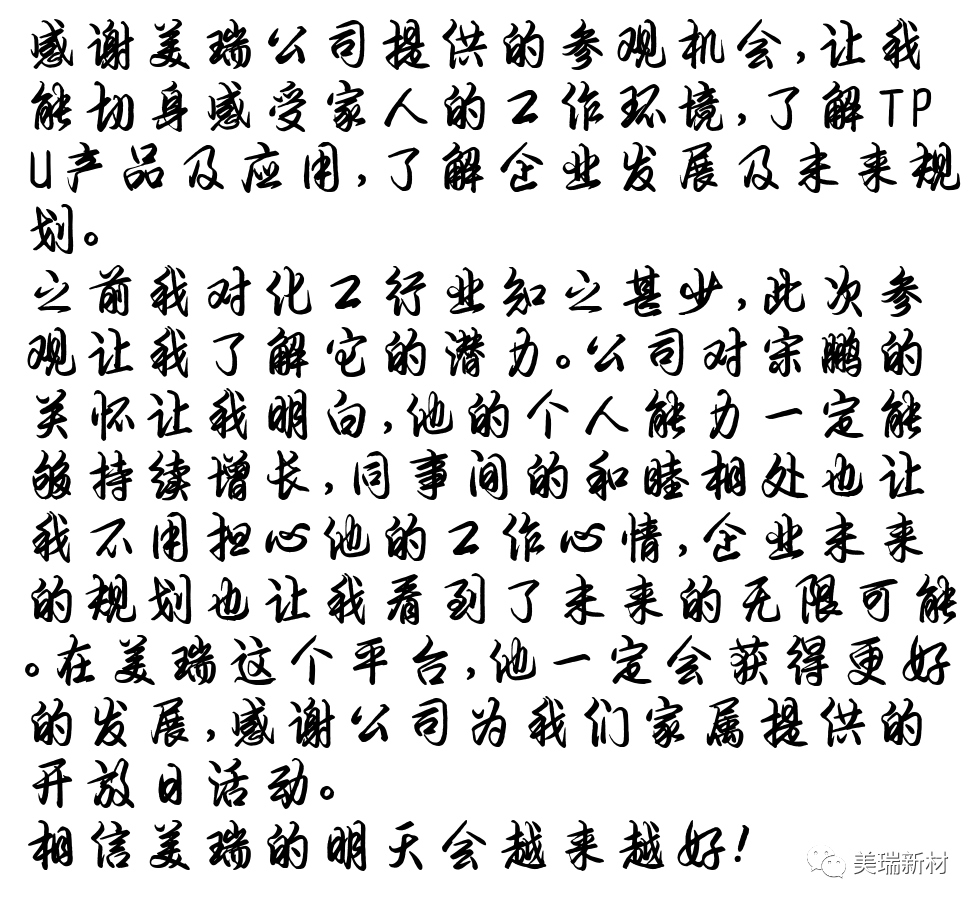 感谢美瑞公司提供的参观机会,让我
能切身感受家人的工作环境,了解TP
U产品及应用,了解企业发展及未来规
划。
之前我对化工行业知之甚少,此次参
观让我了解它的潜力。公司对宗鹏的
关怀让我明白,他的个人能力一定能
够持续增长,同事间的和睦相处也让
我不用担心他的工作心情,企业未来
的规划也让我看到了未来的无限可能
。在美瑞这个平台,他一定会获得更好
的发展,感谢公司为我们家属提供的
开放日活动。
相信美瑞的明天会越来越好!
美瑞新材